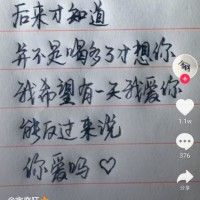 后来才知道
并不是喝多了才想你
我希望有一天我爱你
能反过来说
你爱吗♡
1.1w
376
分享